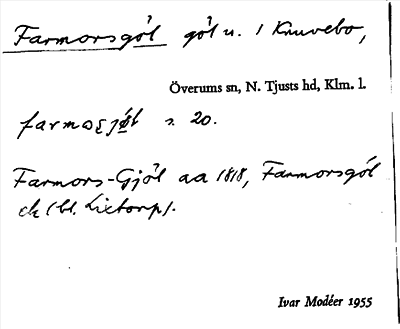 Farmorsgöl göl n. i Knuvebo,
Överums sn, N. Tjusts hd, Klm. l.
s. 20.
Farmors-Gjöl aa 1818, Farmorsgöl
ek (bl. Lixtorp).
Ivar Modéer 1955